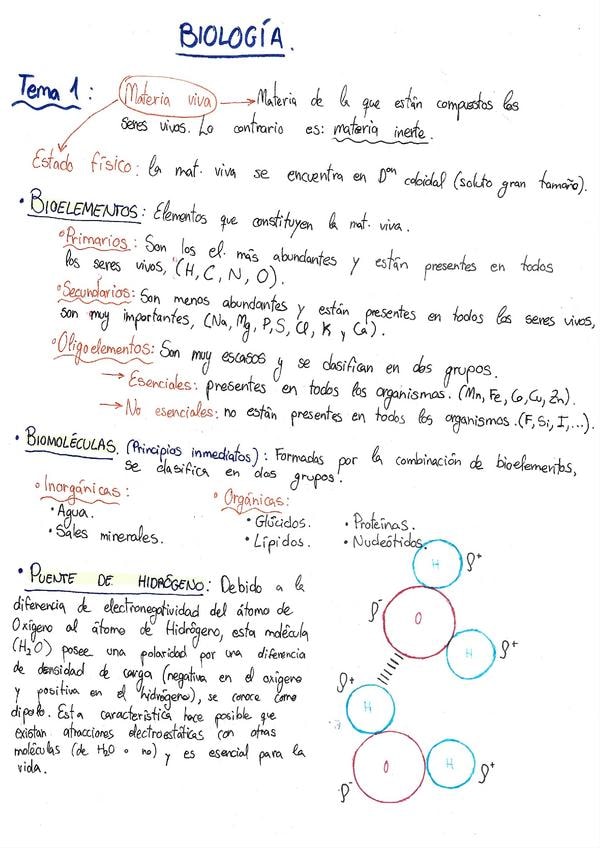 BIOLOGÍA.
Tema 1: Materia viva → Materia de la que están compuestos los
seres vivos. Lo contrario es: materia inerte.
Estado físico: la mat. viva se encuentra en Dᵒⁿ coloidal (soluto gran tamaño).
• BIOELEMENTOS: Elementos que constituyen la mat. viva.
• Primarios: Son los el. más abundantes y están presentes en todos
los seres vivos, (H, C, N, O).
• Secundarios: Son menos abundantes y están presentes en todos los seres vivos,
son muy importantes, (Na, Mg, P, S, Cl, K y Ca).
• Oligoelementos: Son muy escasos y se clasifican en dos grupos.
→ Esenciales: presentes en todos los organismos. (Mn, Fe, Co, Cu, Zn).
→ No esenciales: no están presentes en todos los organismos. (F, Si, I, ...).
• BIOMOLÉCULAS. (Principios inmediatos): Formadas por la combinación de bioelementos,
se clasifica en dos grupos.
• Inorgánicas:
• Agua.
• Sales minerales.
• Orgánicas:
• Glúcidos. • Proteínas.
• Lípidos. • Nucleótidos.
• PUENTE DE HIDRÓGENO: Debido a la
diferencia de electronegatividad del átomo de
Oxígeno al átomo de Hidrógeno, esta molécula
(H₂O) posee una polaridad por una diferencia
de densidad de carga (negativa en el oxígeno
y positiva en el hidrógeno), se conoce como
dipolo. Esta característica hace posible que
existan atracciones electroestáticas con otras
moléculas (de H₂O o no) y es esencial para la
vida.
H ρ⁺
ρ⁻ O
H ρ⁺
ρ⁺ H
O H ρ⁺
ρ⁻